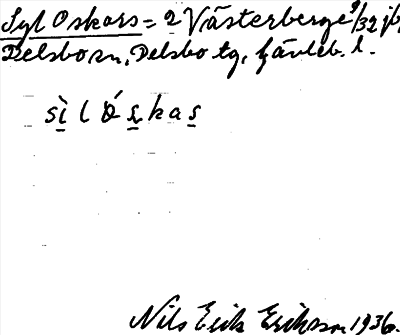 Syl Oskars = 2 Västerberge 9/32 jb,
Delsbo sn, Delsbo tg, Gävleb. l.
sìlóskas
Nils Erik Eriksson 1936.